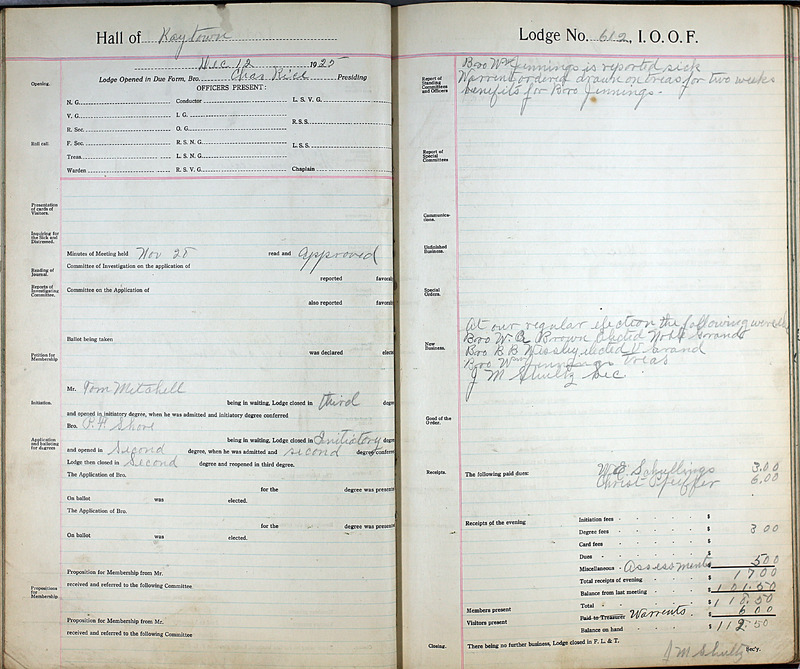 Hall of Kaytown
Dec 12 1925
Lodge Opened in Due Form, Bro. Chas Rice Presiding
OFFICERS PRESENT:
Opening.
N. G. Conductor L. S. V. G.
V. G. I. G.
R. S. S.
R. Sec. O. G.
Roll call.
F. Sec. R. S. N. G.
L. S. S.
Treas. L. S. N. G.
Warden R. S. V. G. Chaplain
Presentation of cards of Visitors.
Inquiring for the Sick and Distressed.
Minutes of Meeting held Nov 28 read and approved
Reading of Journal.
Committee of Investigation on the application of
reported favorab
Reports of Investigating Committee.
Committee on the Application of
also reported favorab
Ballot being taken
was declared elect
Petition for Membership
Mr. Tom Mitchell
Initiation.
being in waiting, Lodge closed in third degre
and opened in initiatory degree, when he was admitted and initiatory degree conferred
Bro. P. H. Shore
Application and balloting for degrees
being in waiting, Lodge closed in Initiatory degre
and opened in Second degree, when he was admitted and second degree conferre
Lodge then closed in second degree and reopened in third degree.
The Application of Bro.
for the degree was presente
On ballot was elected.
The Application of Bro.
for the degree was presente
On ballot was elected.
Proposition for Membership from Mr.
Propositions for Membership.
received and referred to the following Committee
Proposition for Membership from Mr.
received and referred to the following Committee
Lodge No. 612, I. O. O. F.
Report of Standing Committees and Officers
Bro Wm Jennings is reported sick
Warrent ordered drawn on treas for two weeks
benefits for Bro Jennings.
Report of Special Committees
Communications.
Unfinished Business.
Special Orders.
New Business.
At our regular election the following were
Bro W. E. Brown elected Noble Grand
Bro B B elected V. Grand
Bro Wm Jennings Treas
J M Shultz Sec
Good of the Order.
Receipts.
The following paid dues: W E Schullings 3.00
Christ Pfuffer 6.00
Receipts of the evening
Initiation fees $
Degree fees $ 3 00
Card fees $
Dues $
Miscellaneous Assessments 5 00
Total receipts of evening $ 17.00
Balance from last meeting $ 101.50
Total $ 118.50
Members present
Paid to Treasurer Warrents $ 6 00
Visitors present
Balance on hand $ 112.50
Closing.
There being no further business, Lodge closed in F. L. & T.
J M Shultz Sec'y.